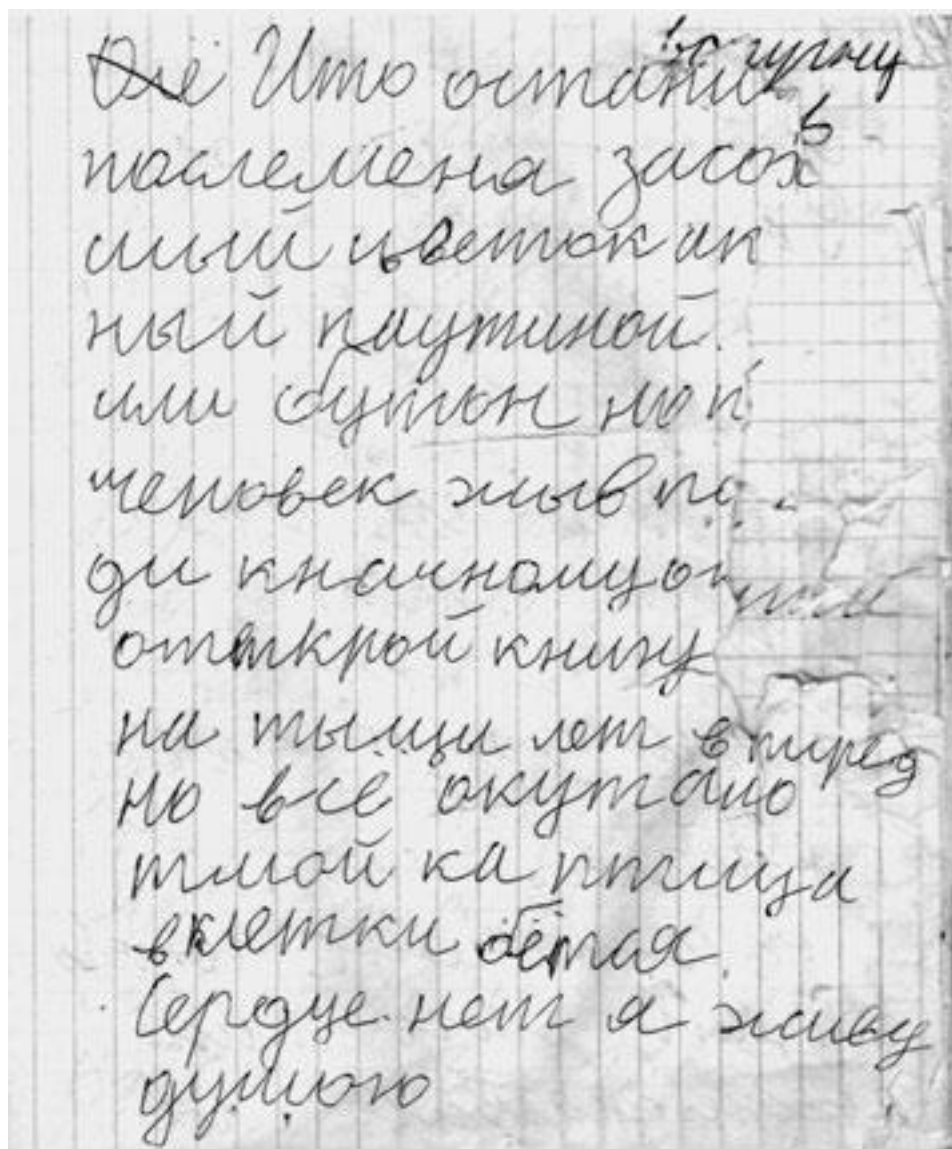 Что остани
послемена засох
шый цветок ик
ный паутиной
или бутон на п
человек жыв по
ди кначномуо
отткрой книгу
на тыщи лет впиред
но всё окутано
тмой ка птица
в клетки бётая
Сердце нет я живу
думою